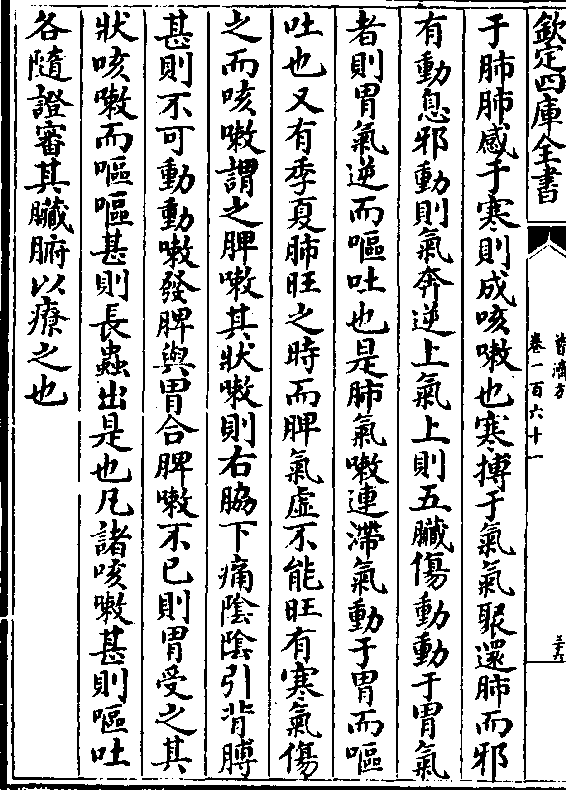 欽定四庫全書
普濟方
卷一百六十一
于肺肺感于寒則成咳嗽也寒搏于氣氣聚還肺而邪
有動息邪動則氣奔逆上氣上則五臟傷動動于胃氣
者則胃氣逆而嘔吐也是肺氣嗽連滯氣動于胃而嘔
吐也又有季夏肺旺之時而脾氣虛不能旺有寒氣傷
之而咳嗽謂之脾嗽其狀嗽則右脇下痛陰陰引背膊
甚則不可動動嗽發脾與胃合脾嗽不已則胃受之其
狀咳嗽而嘔嘔甚則長蟲出是也凡諸咳嗽甚則嘔吐
各隨證審其臟腑以療之也